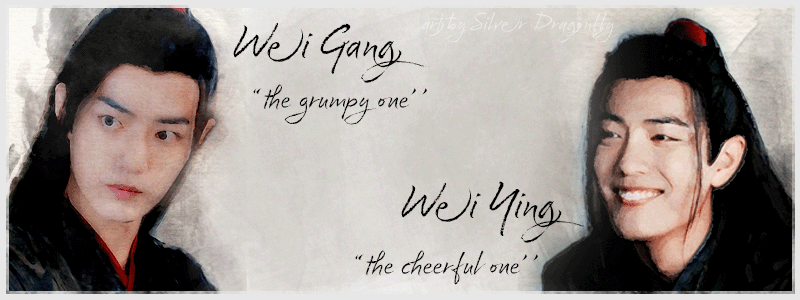 art by Silver Dragonfly
Wei Gang
“the grumpy one’’
Wei Ying
“the cheerful one’’